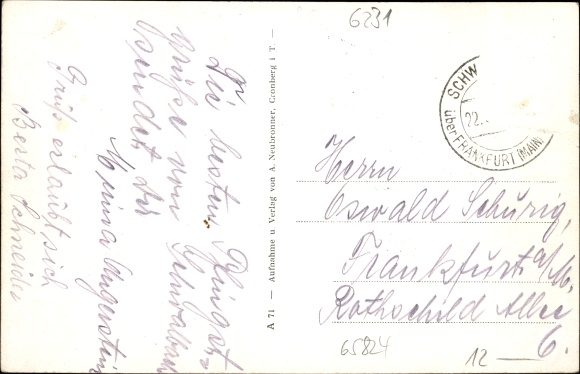 6231
Die besten Pfingst-
grüße von Schwalbach
sendet dir
Minna Angerstein
Gruß erlaubt sich
Berta Schneider
A 71 — Aufnahme u. Verlag von A. Neubronner, Cronberg i T —
SCHW
22.
über FRANKFURT (MAIN)
Herrn
Oswald Schurig,
Frankfurt a/M.
Rothschild Allee
6.
65824
12